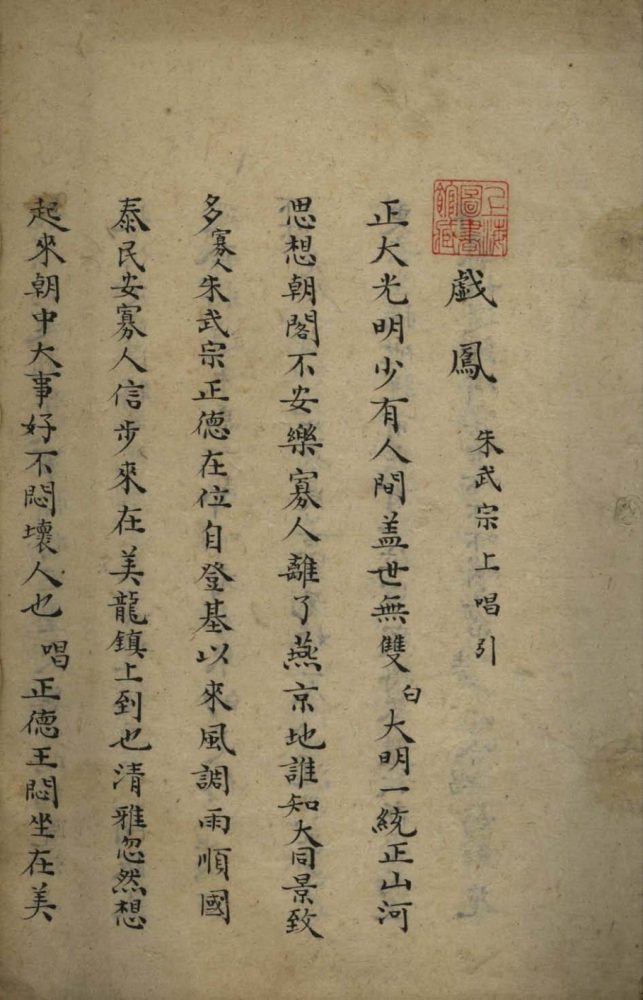 上海圖書館藏
戲鳳 朱武宗上唱引
正大光明少有人間盖世無雙 白 大明一統正山河
思想朝閣不安樂寡人離了燕京地誰知大同景致
多寡人朱武宗正德在位自登基以來風調雨順國
泰民安寡人信步來在美龍鎮上到也清雅忽然想
起來朝中大事好不悶壞人也 唱 正德王悶坐在美